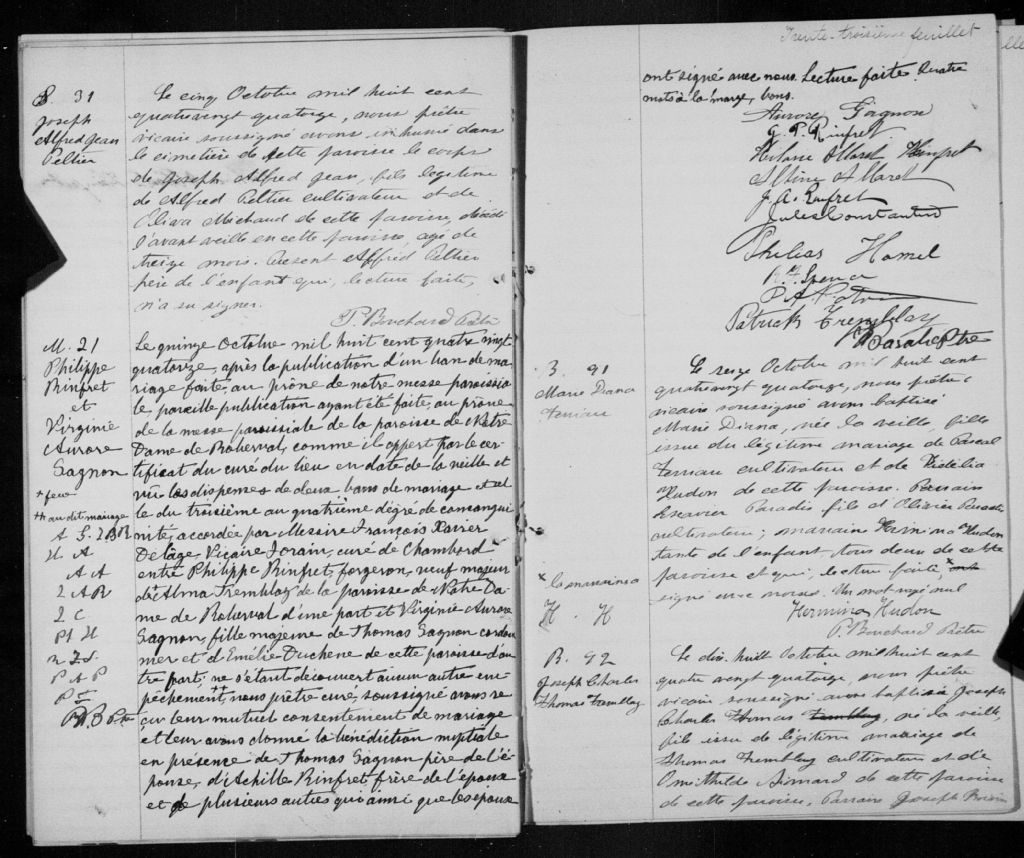 S. 31
Joseph
Alfred Jean
Peltier
Le cinq Octobre mil huit cent
quatrevingt quatorze, nous prêtre
vicaire soussigné avons inhumé dans
le cimetière de cette paroisse le corps
de Joseph Alfred Jean, fils légitime
de Alfred Peltier cultivateur et de
Oliva Michaud de cette paroisse, décédé
l'avant veille en cette paroisse, agé de
treize mois. Present Alfred Peltier
père de l'enfant qui, lecture faite,
n'a su signer.
P. Bouchard Ptre
M. 21
Philippe
Rinfret
et
Virginie
Aurore
Gagnon
+ feue
++ au dit mariage
A G. J B R
H A
A A
J A R
J C
Ph H
P A P
P T
B Ptre
Le quinze Octobre mil huit cent quatre vingt
quatorze, après la publication d'un ban de ma-
riage faite au prône de notre messe paroissia-
le, pareille publication ayant été faite, au prône
de la messe paroissiale de la paroisse de Notre
Dame de Roberval, comme il appert par le cer-
tificat du curé du lieu en date de la veille et
vu les dispenses de deux bans de mariage et cel
le du troisième au quatrième dégré de consangui
nité, accordée par Messire François Xavier
Delâge, Vicaire Forain, curé de Chambord
entre Philippe Rinfret, forgeron, veuf majeur
d'Alma Tremblay de la paroisse de Notre Da-
me de Roberval d'une part et Virginie Aurore
Gagnon, fille majeure de Thomas Gagnon cordon
nier et d'Emélie Duchene de cette paroisse d'au
tre part; ne s'étant découvert aucun autre em-
pêchement, nous prêtre curé, soussigné avons re
çu leur mutuel consentement de mariage
et leur avons donné la bénédiction nuptiale
en présence de Thomas Gagnon père de l'é-
pouse, d'Achille Rinfret frère de l'époux
et de plusieurs autres qui ainsi que les époux
Trente-troisième feuillet
ont signé avec nous. Lecture faite. Quatre
mots à la marge, bons.
Aurore Gagnon
J. P. Rinfret
J. A. Rinfret
Jules Constantin
Philias Hamel
Patrick Tremblay
B. 91
Marie Diana
Ferland
x la marraine a
H. H
Le seize Octobre mil huit cent
quatrevingt quatorze, nous prêtre
vicaire soussigné avons baptisé
Marie Diana, née la veille, fille
issue du légitime mariage de Pascal
cultivateur et de Fidélia
Hudon de cette paroisse. Parrain
Xavier Paradis fils d'Olivier Paradis
cultivateur; marraine Hermina Hudon
tante de l'enfant, tous deux de cette
paroisse et qui, lecture faite, x ont
signé avec nous. Un mot rayé nul
Hermina Hudon
P. Bouchard Prêtre
B. 92
Joseph Charles
Thomas Tremblay
Le dix huit Octobre mil huit cent
quatre vingt quatorze, nous prêtre
vicaire soussigné avons baptisé Joseph
Charles Thomas Tremblay, né la veille,
fils issu de légitime mariage de
Thomas Tremblay cultivateur et de
Omithilde Simard de cette paroisse
de cette paroisse, Parrain Joseph